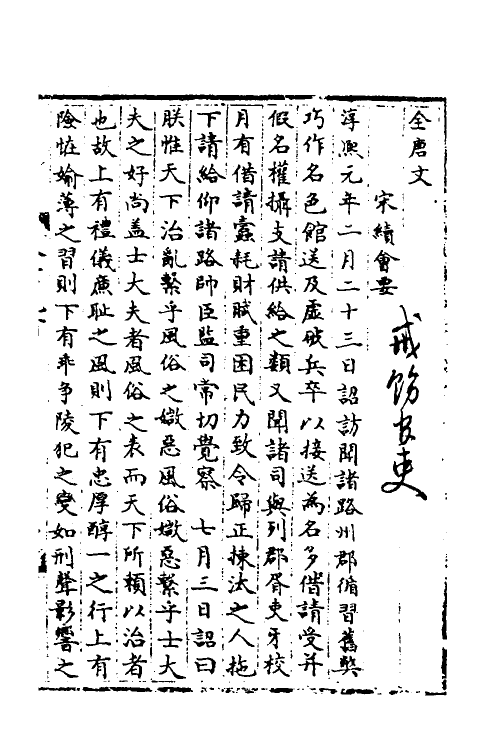 全唐文
宋續會要
戒飭官吏
淳熙元年二月二十三日詔訪聞諸路州郡循習舊弊
巧作名色館送及虛破兵卒以接送為名多借請受并
假名權攝支請供給之類又聞諸司與列郡胥吏牙校
月有借請蠹耗財賦重困民力致令歸正揀汰之人拖
下請給仰諸路帥臣監司常切覺察 七月三日詔曰
朕惟天下治亂繫乎風俗之媺惡風俗媺惡繫乎士大
夫之好尚盖士大夫者風俗之表而天下所賴以治者
也故上有禮儀廉耻之風則下有忠厚醇一之行上有
險怪媮薄之習則下有乖爭陵犯之變如刑聲影響之